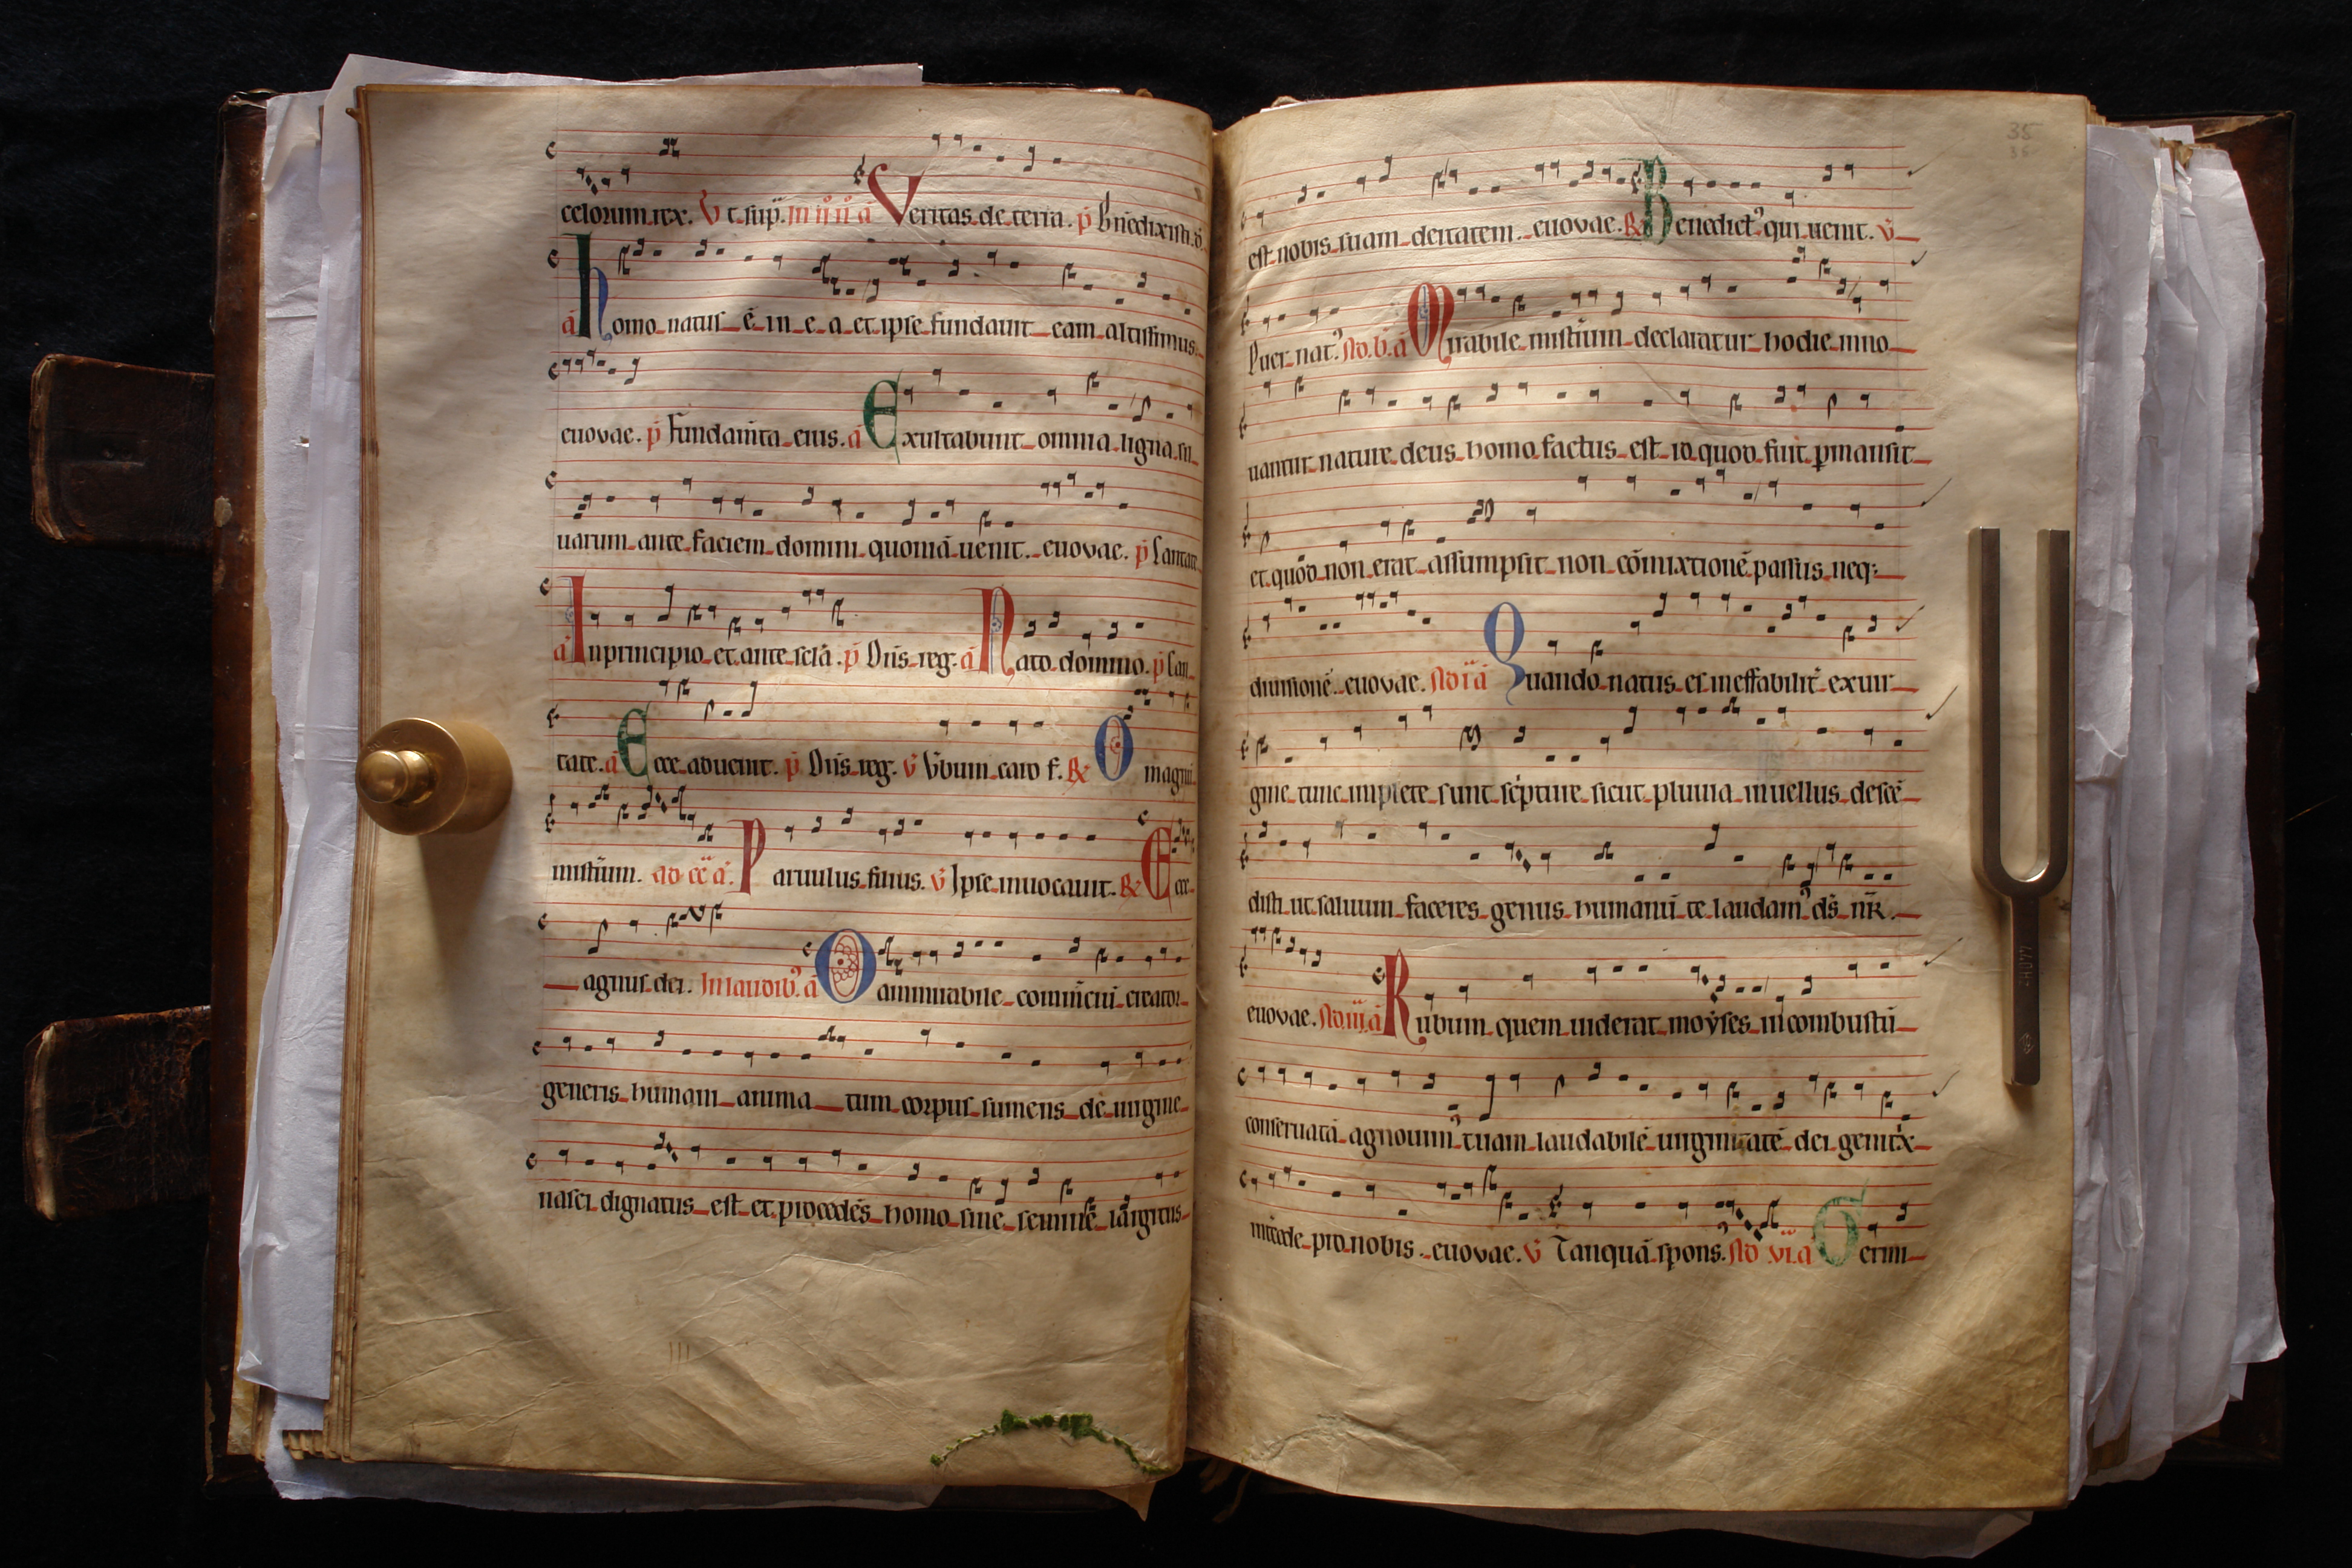 celorum rex. V t sup. in iii ii a Veritas de terra. p Bnedixisti. v.
a homo natus ē in e a et ipse fundauit eam altissimus.
euovae. p fundamta eius. a Exultabunt omnia ligna sil
uarum ante faciem domini quoniā uenit. euovae. p Cantate
a In principio et ante sclā. p Dns reg. a Nato domino. p Can
tate. a Ecce aduenit. p Dns reg. v Vbum caro f. R O magnū
mistium. ad cc a. Paruulus filius. v Ipse inuocauit. R Ecce
agnus dei. In laudib. a O ammirabile comciui creator
generis humani anima tum corpus sumens de uirgine
nasci dignatus est et procedēs homo sine semine largitus
35
35
est nobis suam deitatem. euovae. R Benedict' qui uenit. v
Puer nat' Ad. b. a Mirabile mistium declaratur hodie inno
uantur nature deus homo factus est id quod fuit pmansit
et quod non erat assumpsit non cōmixtionē passus neq;
diuisionē. euovae. Ad i a Quando natus es ineffabilit exuir
gine tunc implete sunt scipture sicut pluuia in uellus descē
disti ut saluum faceres genus humanū te laudam' ds nr.
euovae. Ad iii. a Rubum quem uiderat moyses incombustū
conseruatā agnouim' tuam laudabilē uirginitatē dei genitx
intcede pro nobis. euovae. v Tanquā spons' Ad vi. a Germi